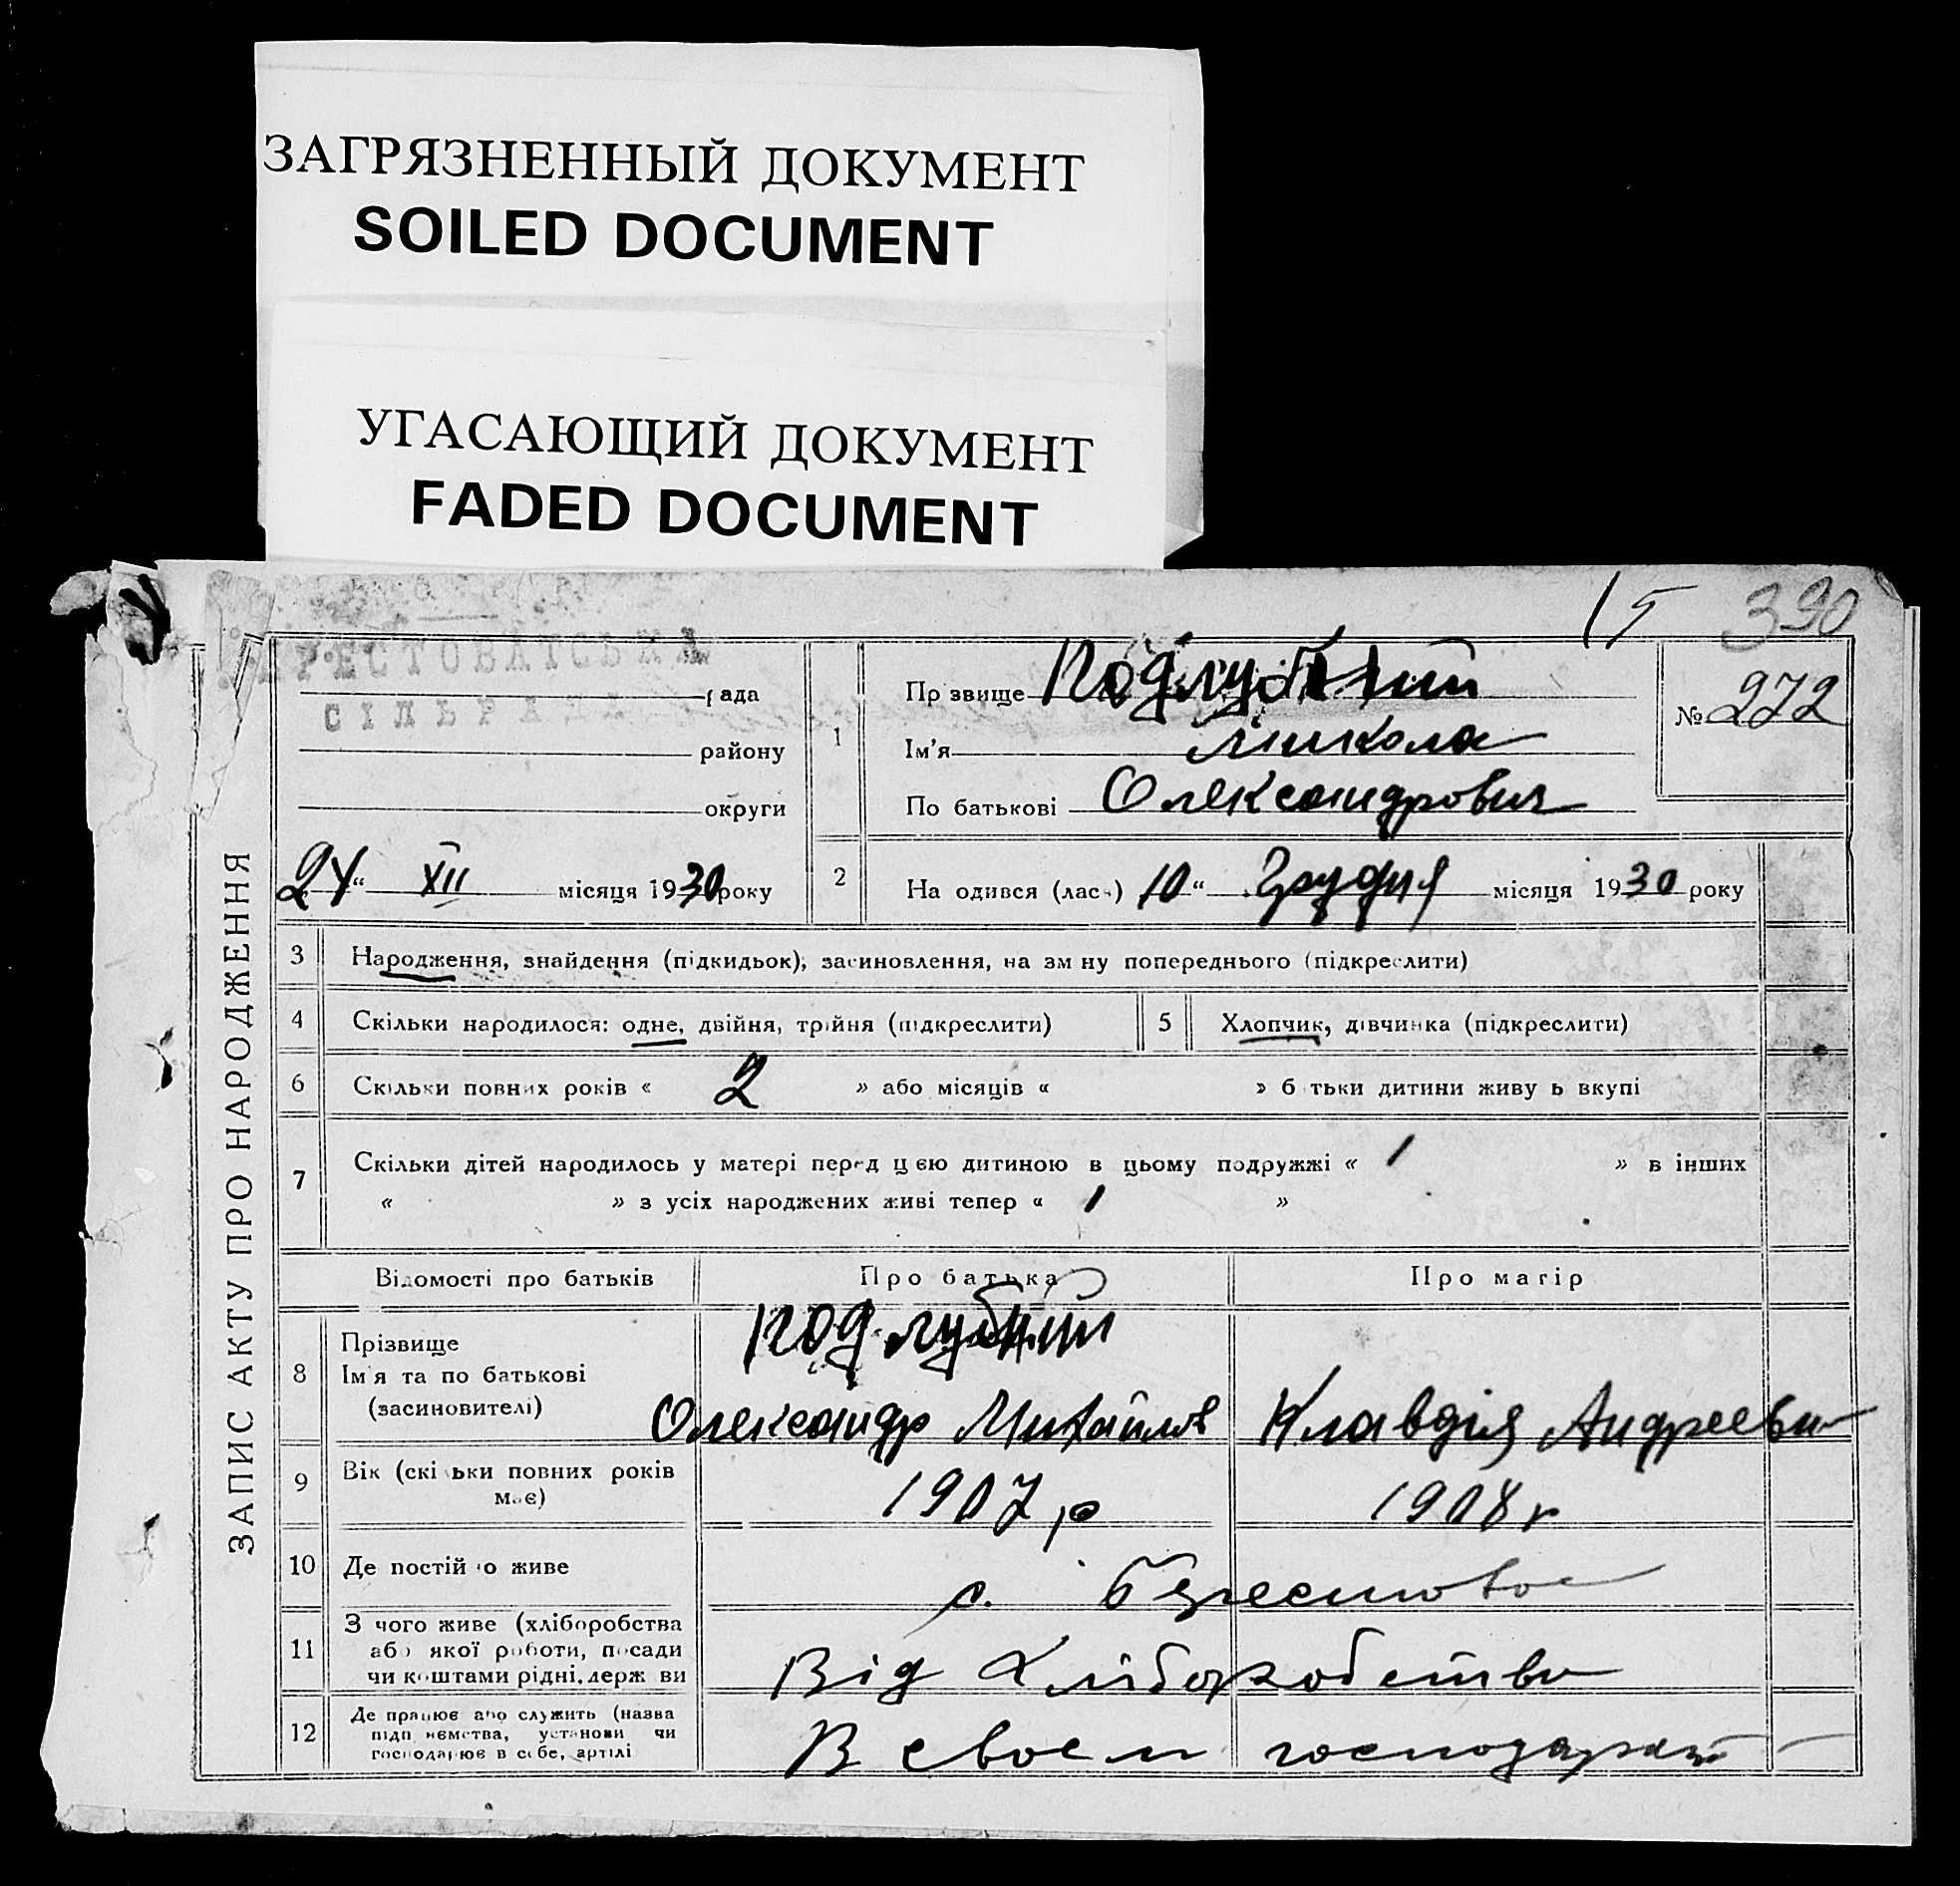 ЗАГРЯЗНЕННЫЙ ДОКУМЕНТ
SOILED DOCUMENT
УГАСАЮЩИЙ ДОКУМЕНТ
FADED DOCUMENT
390
ЗАПИС АКТУ ПРО НАРОДЖЕННЯ
РЕСТОВАТСЬКА
рада
СІЛЬРАДА
району
округи
24 “ XII місяця 1930 року
1
Прізвище Подлубний
Ім’я Микола
По батькові Олександрович
№ 272
2 На одився (лась) 10 “ Грудня місяця 1930 року
3 Народження, знайдення (підкидьок), засиновлення, на зміну попереднього (підкреслити)
4 Скільки народилося: одне, двійня, трійня (підкреслити) 5 Хлопчик, дівчинка (підкреслити)
6 Скільки повних років « 2 » або місяців « » батьки дитини живуть вкупі
7 Скільки дітей народилось у матері перед цією дитиною в цьому подружжі « 1 » в інших
« » з усіх народжених живі тепер « 1 »
Відомості про батьків Про батька Про матір
8 Прізвище
Ім’я та по батькові
(засиновителі)
Подлубний
Олександр Михайлов Клавдія Андреевн
9 Вік (скільки повних років
має)
1907 р 1908 р
10 Де постійно живе с. Берестовое
11 З чого живе (хліборобства
або якої роботи, посади
чи коштами рідні, держави
Від Хліборобства
12 Де працює або служить (назва
підприємства, установи чи
господарює в себе, артілі
В своем господарстві